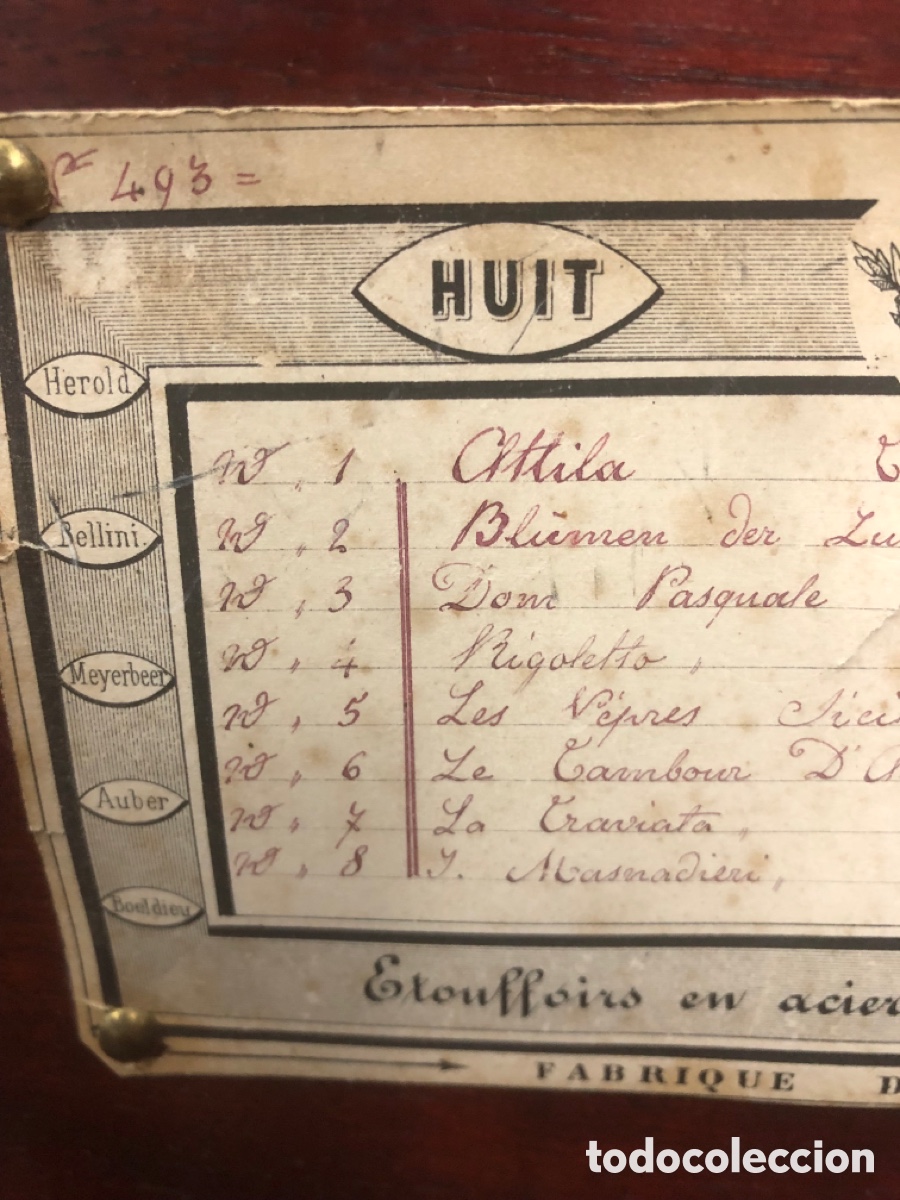 Nº 493 =
HUIT
Herold
Bellini.
Meyerbeer
Auber
Boeldieu
Nº „ 1 Attila
Nº „ 2 Blümen der
Nº „ 3 Dom Pasquale
Nº „ 4 Rigoletto „
Nº „ 5 Les Vépres
Nº „ 6 Le Tambour D'
Nº „ 7 La Traviata „
Nº „ 8 I. Masnadieri „
Etouffoirs en acier
FABRIQUE D
todocoleccion